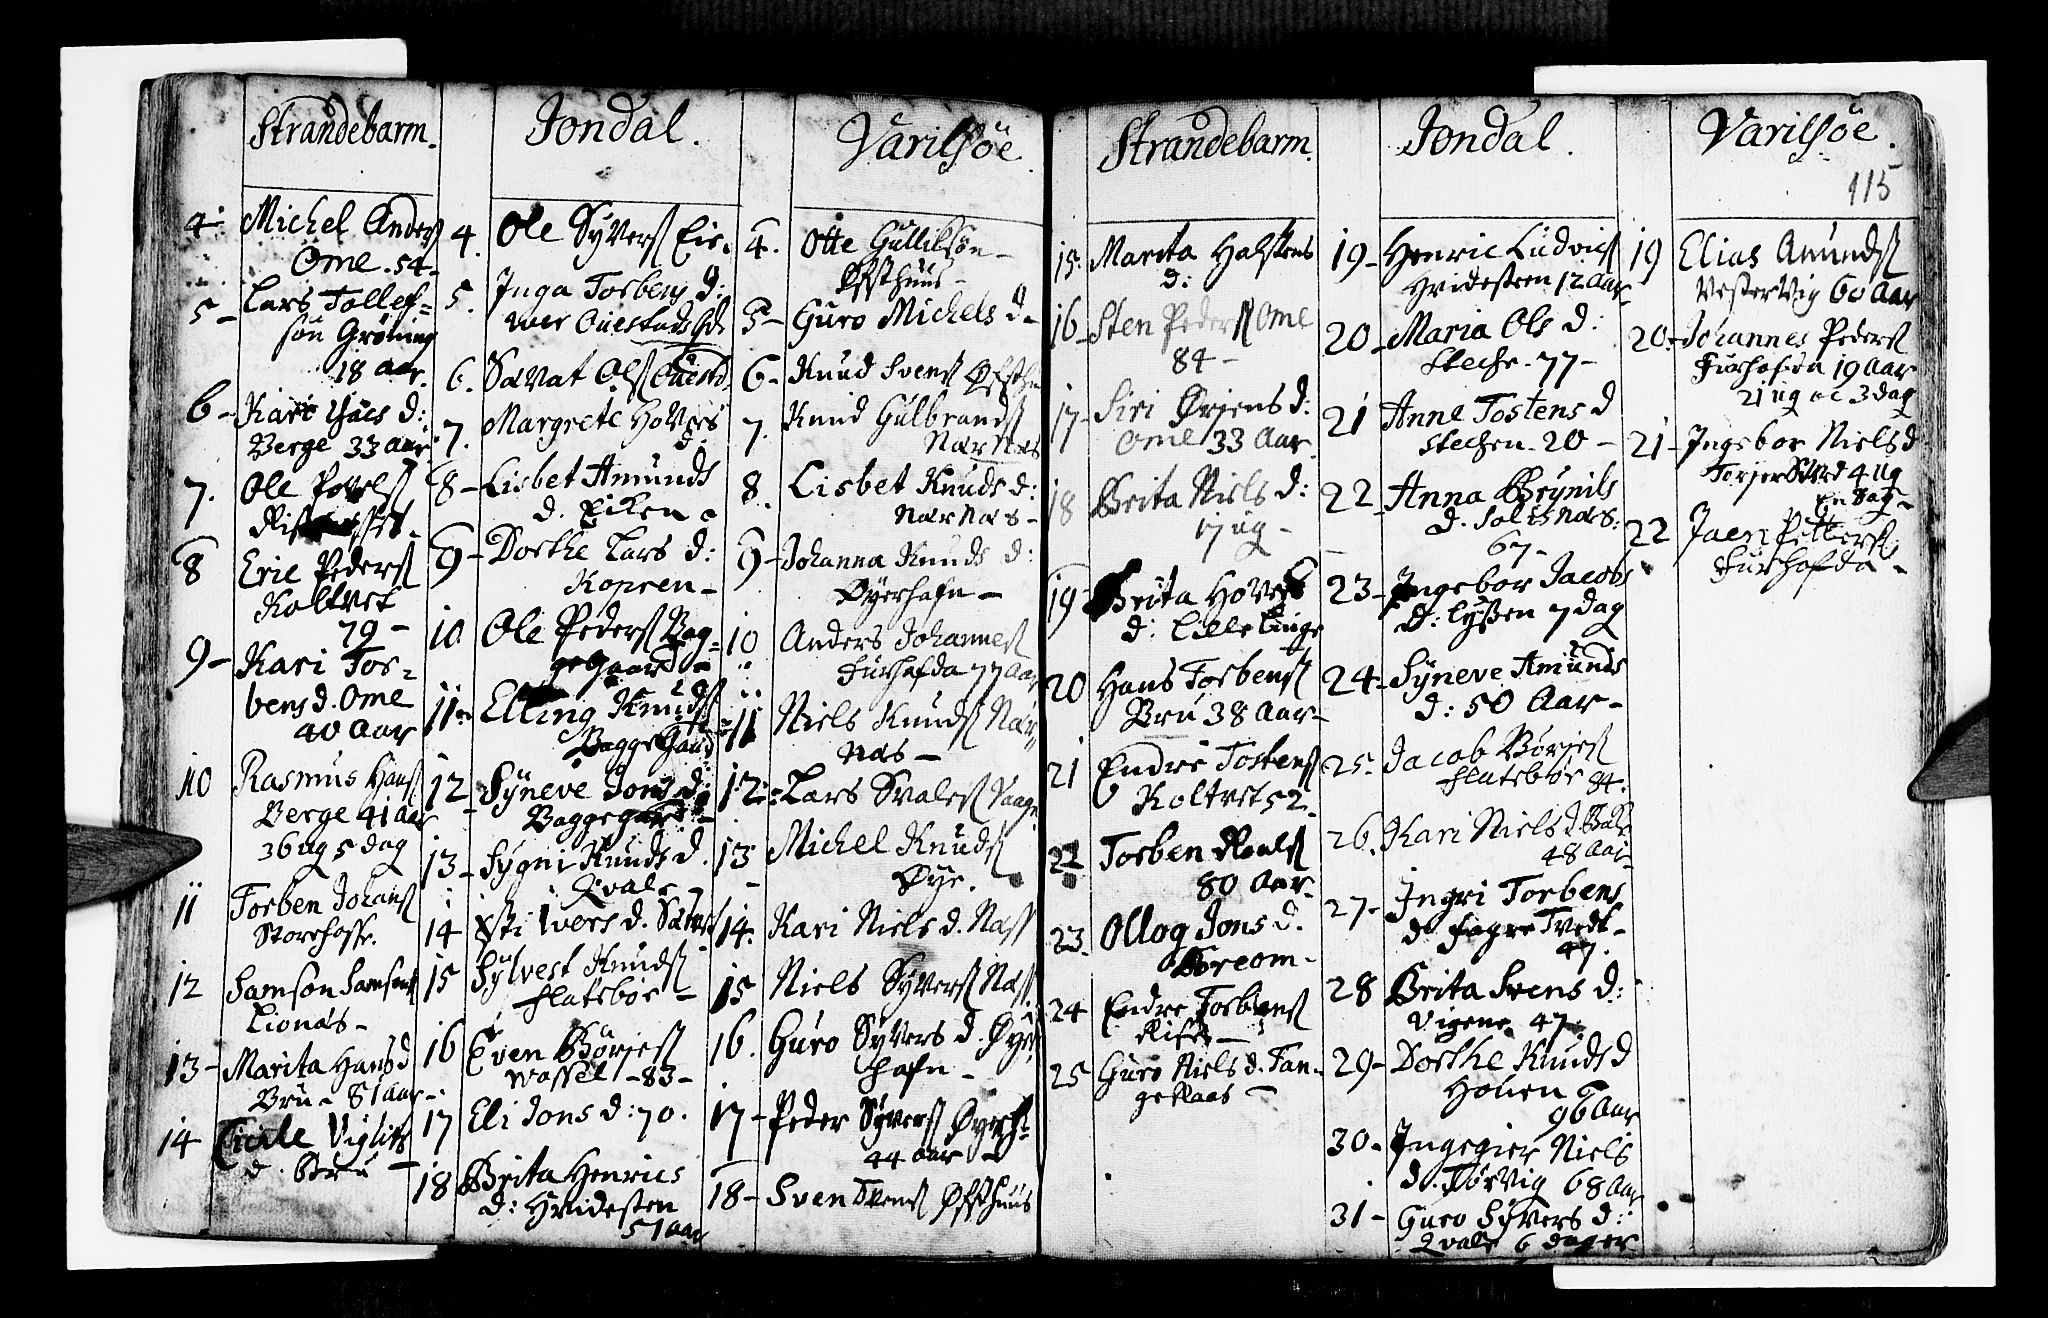 Strandebarm.
4- Michel Anders
Ome. 54-
5- Lars Tollef=
søn Grøning
18 aar.
6- Kari d:
Berge 33 aar
7. Ole Povels
8 Eric Peders
Koltvet
79-
9- Kari Tor=
bens d. Ome
40 Aar
10 Rasmus Hans
Berge 41 Aar
36 ug 5 dag
11 Torben Johans
Storehosse.
12 Samson Samsons
Lionæs-
13- Marita Hans d
Bru - 81 Aar-
14 Cicile Viglies
d. Bru-
Jondal.
4. Ole Syvers Eie.
5. Inga Torbens d:
6. Savat Ols
7. Margrete Hovers
d.
8- Lisbet Amunds
d. Eiken-
9- Dorthe Lars d:
Kopren-
10 Ole Peders Bag=
gegaard-
11- Elling Knuds
Baggegaard
12 Syneve Jons d:
Baggegaard-
13- Sygni Knuds d.
Qvale
14 Ivers d.
15 Sylvest Knuds
Flatebøe-
16 Even Børjes
Wassel -83-
17 Eli Jons d: 70.
18 Brita Henrics
d: Hvidesten
51 aar
Varilsøe.
4. Otte Gulliksøn-
Øfsthuus-
5- Guro Michels d-
6- Knud Svens Øfsthu
7. Knud Gulbrands
Nærnæs
8. Lisbet Knuds d:
Nærnæs-
9- Johanna Knuds d:
Øyerhafn-
10 Anders Johannes
Furhofda 77 Aar
11 Niels Knuds Nær
næs-
12- Lars Svales Vaage
13 Michel Knuds
Øye.
14. Kari Niels d. Næss
15 Niels Syvers Næss
16. Guro Syvers d. Øyer
hafn-
17- Peder Syvers Øyerh
44 aar-
18- Sven Svens Øfsthuus
Strandebarm.
15. Marita Halstens
d:
16- Sten Peders Ome
84-
17- Siri Ørjens d:
Ome 33 Aar
18 Brita Niels d:
17 ug-
19 Brita Hovers
d: Lille Linge
20 Hans Torbens
Bru 38 Aar-
21 Endre Tostens
Koltvet 52
22 Torben Roals
80 Aar-
23. Ollog Jons d.
Breom-
24 Endre Torbens
Rifve-
25 Guro Niels d. Tan-
geraas-
Jondal.
19- Henric Ludvics
Hvidesteen 12 Aar
20- Maria Ols d:
Steche-77-
21 Anne Tostens d
Stechen-20-
22- Anna Brynils
d. Solisnæs:
67-
23- Ingebor Jacobs
d: Lyssen 7 dag
24- Syneve Amunds
d: 50 Aar-
25. Jacob Børjes
Flatebøe 84.
26. Kari Niels d.
48 Aar-
27- Ingri Torbens
d Fagretvedt-
47.
28 Brita Svens d:
Vigene. 47
29- Dorthe Knuds d
Hoven
96 Aar
30- Ingegier Niels
d. Tørvig 68 Aar
31- Guro Syvers d:
Qvale 6 dager
Varilsøe.
115
19 Elias Amunds
Vestervig 60 Aar
20- Johannes Peders
Furhofda 19 Aar
21 ug oc 3 dag
21- Ingebor Niels d
4 ug
en dag-
22 Jaen Petters
Furhofda-